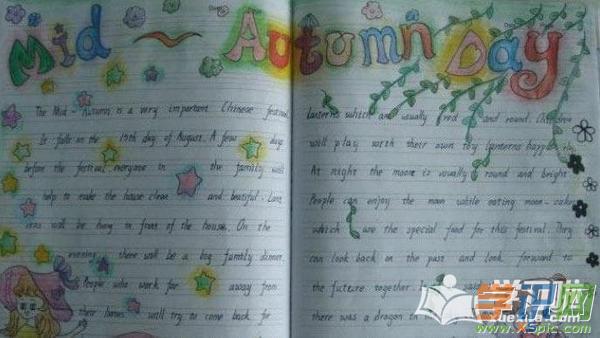 Mid ~ Autumn Day
The Mid - Autumn is a very important Chinese festival.
It falls on the 15th day of August. A few days
before the festival, everyone in the family will
help to make the house clean and beatiful. Lant
erns will be hung in front of the house. On the
evening there will be a big family dinner.
People who work far away from
their homes will try to come back for
lanterns which are usually red and round. Children
will play with their own toy lanterns happily
At night the moon is usually round and bright
People can enjoy the moon while eating moon-cakes
which are the special food for this festival. They
can look back on the past and look forward to
the future together. said
there was a dragon in
学识网
www.xuexila.com
www.xspic.com